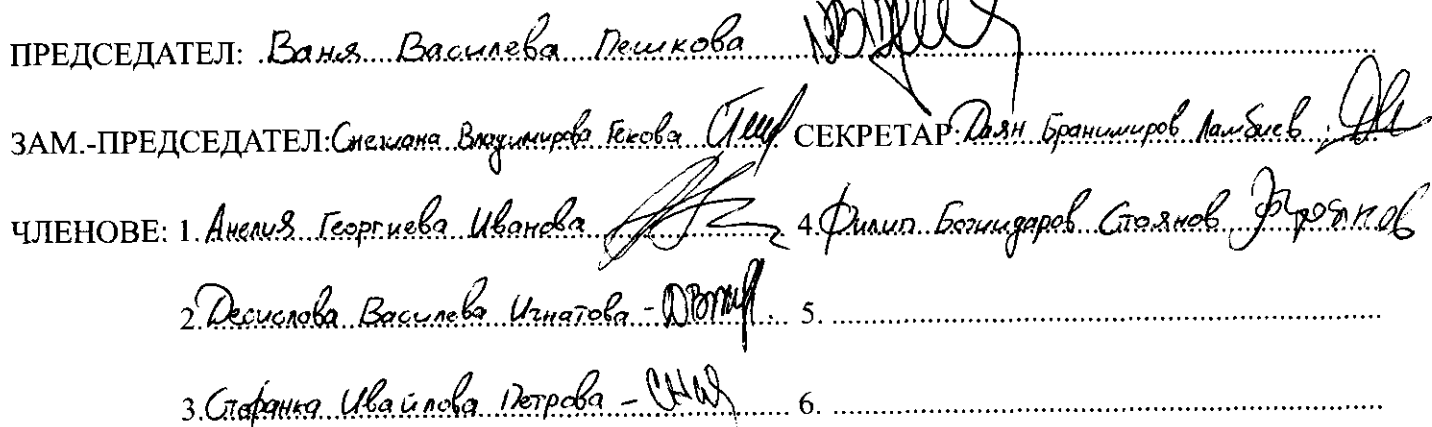 ПРЕДСЕДАТЕЛ: Ваня Василева Пешкова
ЗАМ.-ПРЕДСЕДАТЕЛ: Снежана Владимирова Гекова СЕКРЕТАР: Даян Бранимиров Ламбиев
ЧЛЕНОВЕ: 1. Анелия Георгиева Иванова 4. Филип Божидаров Стоянов
2. Десислова Василева Игнатова - 5.
3. Стефанка Ивайлова Петрова - 6.